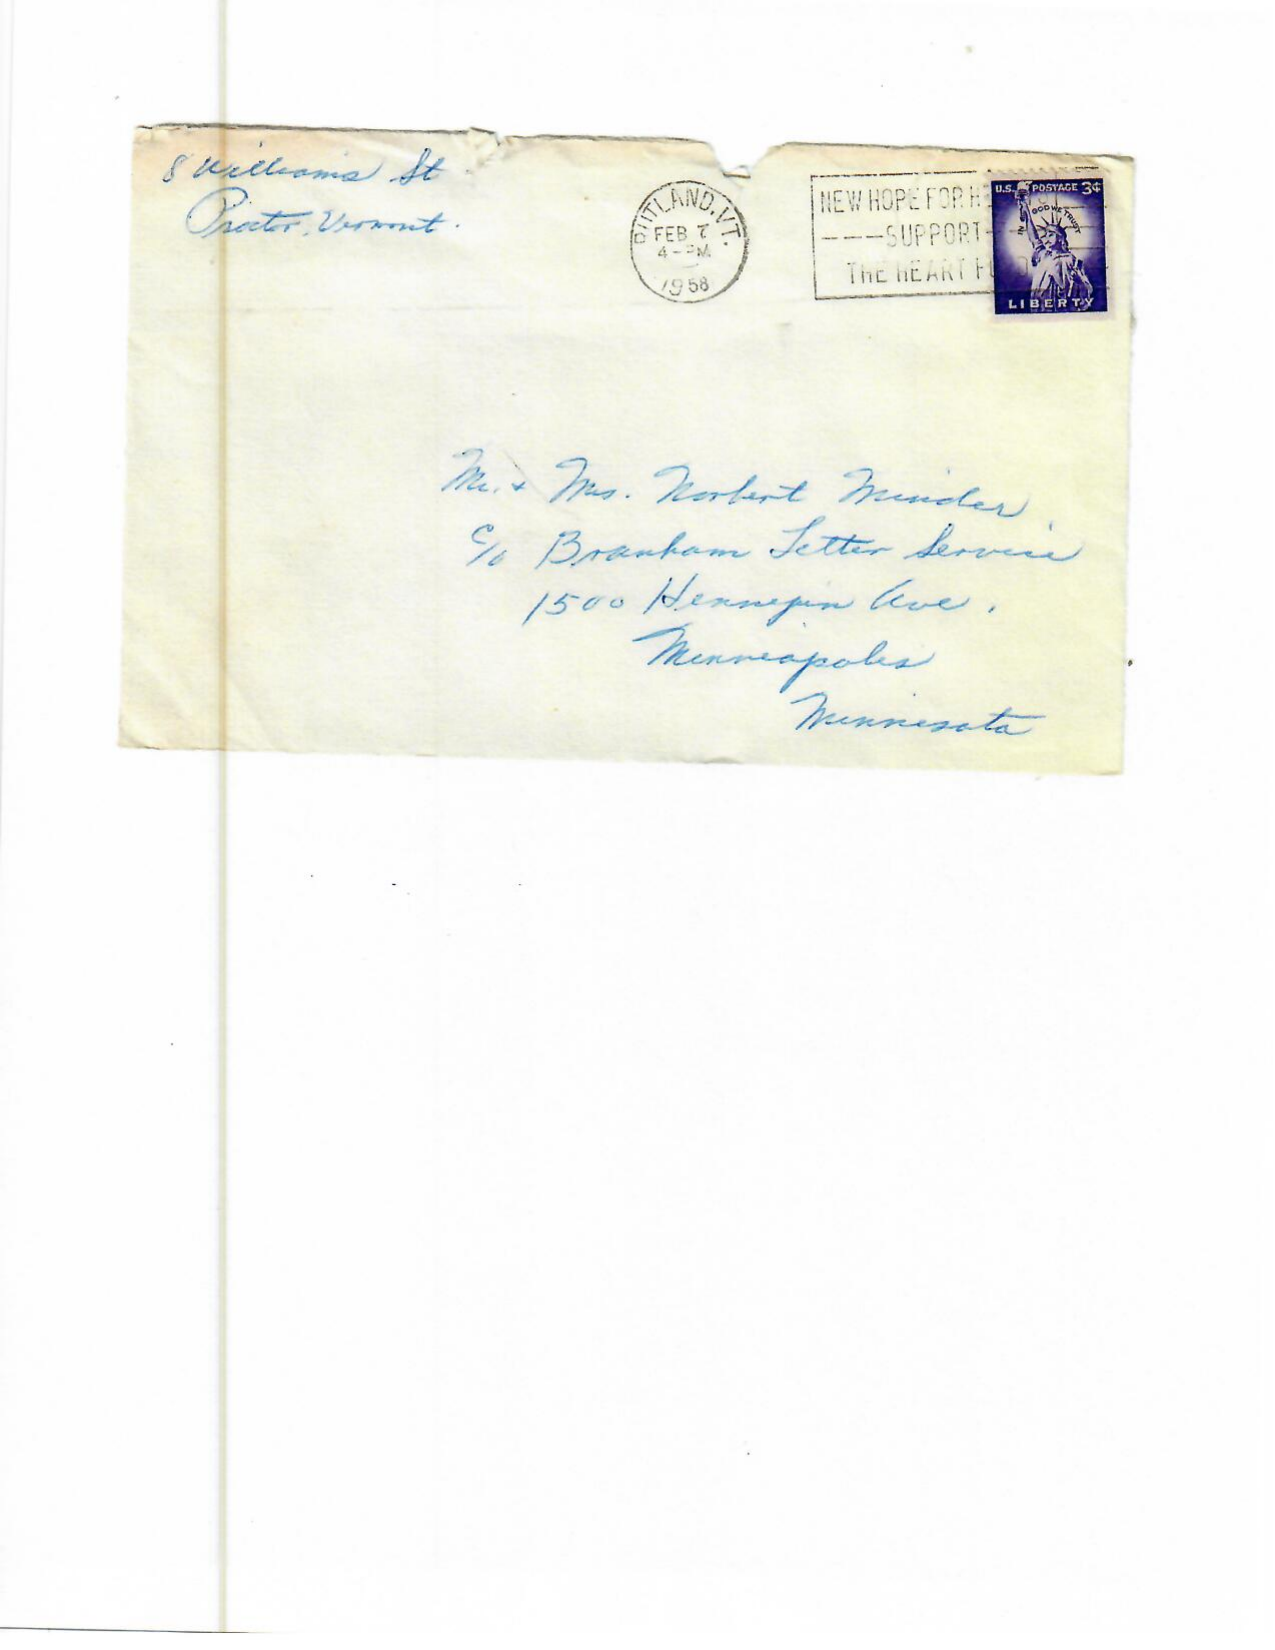 8 Williams St
Proctor, Vermont.
RUTLAND, VT.
FEB 7
4-PM
1958
NEW HOPE FOR
---SUPPORT-
THE HEART
U.S. POSTAGE 3¢
IN GOD WE TRUST
LIBERTY
Mr. + Mrs. Norbert Minder
c/o Branham Letter Service
1500 Hennepin Ave.
Minneapolis
Minnesota